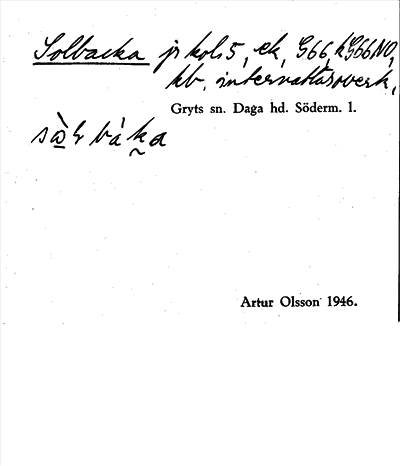 Solbacka jp kols, ek, G66, kG66NO,
kb, intervattasoverk,
Gryts sn. Daga hd. Söderm. l.
sὰlbáka
Artur Olsson 1946.